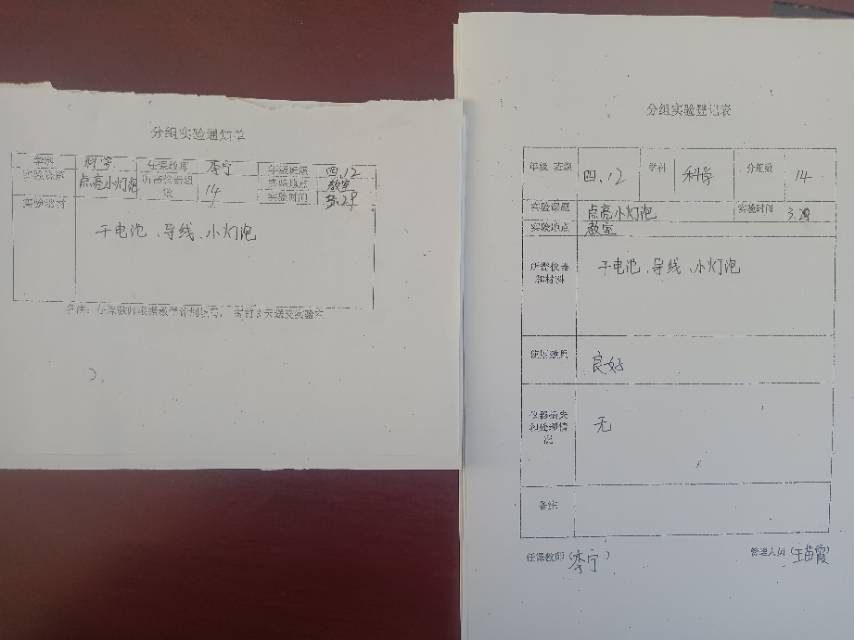 分组实验通知单
学科 科学 任课教师 李宁 年级班级 四.12
实验课题 点亮小灯泡 所需仪器组数 14 实验地点 教室
实验时间 3.29
实验器材
干电池、导线、小灯泡
分组实验登记表
年级 班级 四.12 学科 科学 分组数 14
实验课题 点亮小灯泡 实验时间 3.29
实验地点 教室
所需仪器和材料 干电池、导线、小灯泡
良好
仪器损失和处理情况 无
备注
任课教师(李宁) 管理人员(王苗霞)